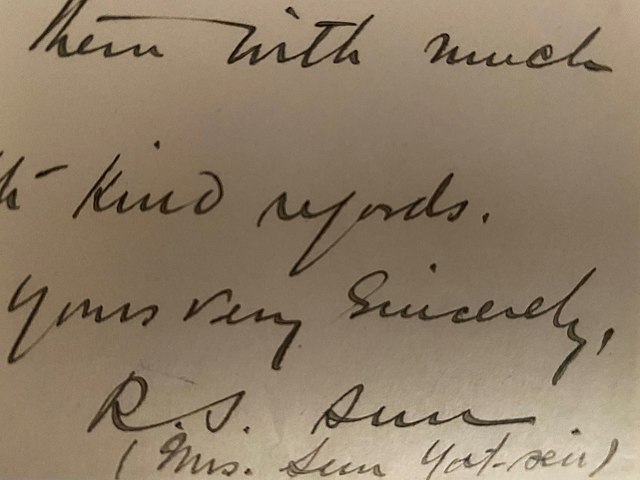 them with much
kind regards.
Yours very sincerely,
R.S. Sun
(Mrs. Sun Yat-sen)